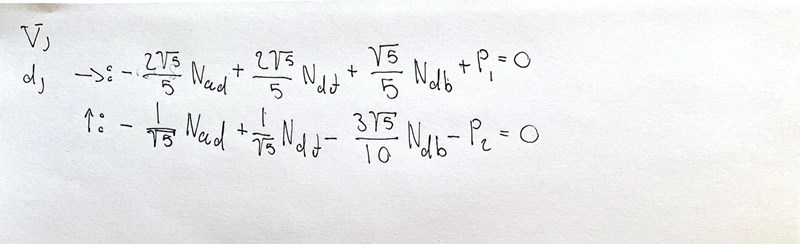 V,
d, →: - 2√5/5 N_ad + 2√5/5 N_df + √5/5 N_db + P_1 = 0
↑: - 1/√5 N_ad + 1/√5 N_df - 3√5/10 N_db - P_2 = 0